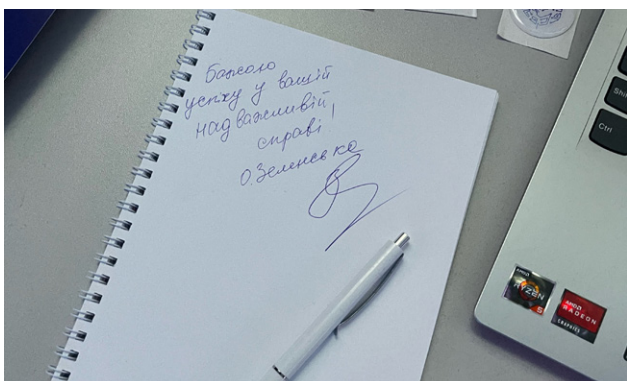 Бажаю
успіху у вашій
надважливій
справі!
О.Зеленська
Shi
Ctrl
AMD
RYZEN
5
AMD
RADEON
GRAPHICS